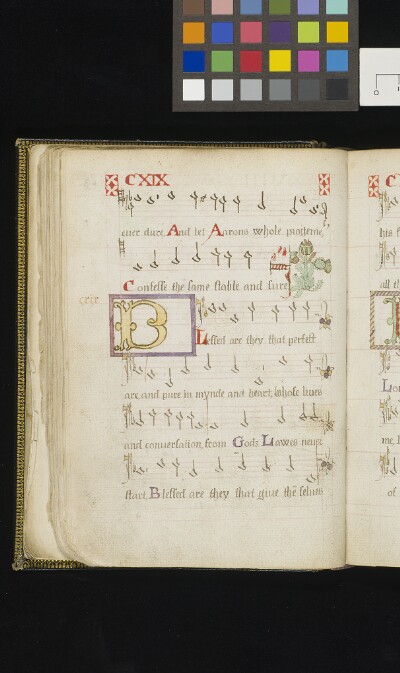 CXIX
euer dure, And let Aarons whole progenie,
Confesse the same stable and sure
B
Lessed are they that perfect
are, and pure in mynde and heart, whose liues
and conuersation from Gods Lawes neuer
start. Blessed are they that giue the selues
C
his
all
me
of